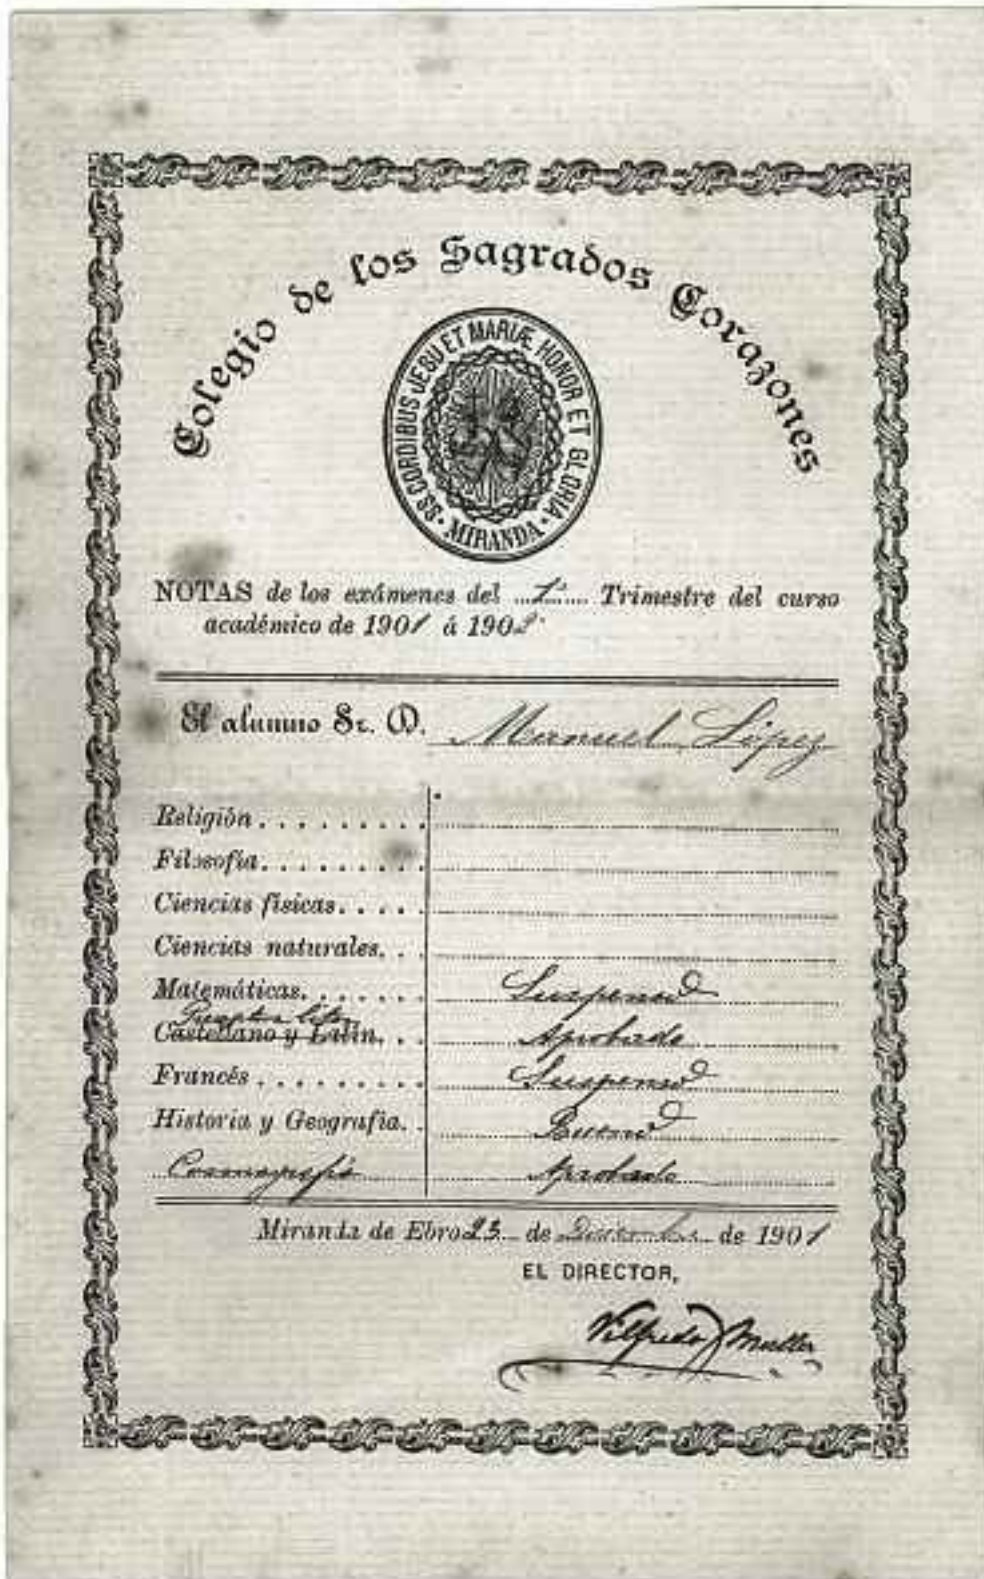 Colegio de los Sagrados Corazones
SS. CORDIBUS JESU ET MARIÆ HONOR ET GLORIA
MIRANDA
NOTAS de los exámenes del 1º Trimestre del curso
académico de 1901 á 1902
El alumno Sr. D. Manuel López
Religión
Filosofía
Ciencias físicas
Ciencias naturales
Matemáticas Suspenso
Castellano y Latín Aprobado
Francés Suspenso
Historia y Geografía Bueno
Cosmografía Aprobado
Miranda de Ebro 23 de Diciembre de 1901
EL DIRECTOR,
Vilfredo Muller